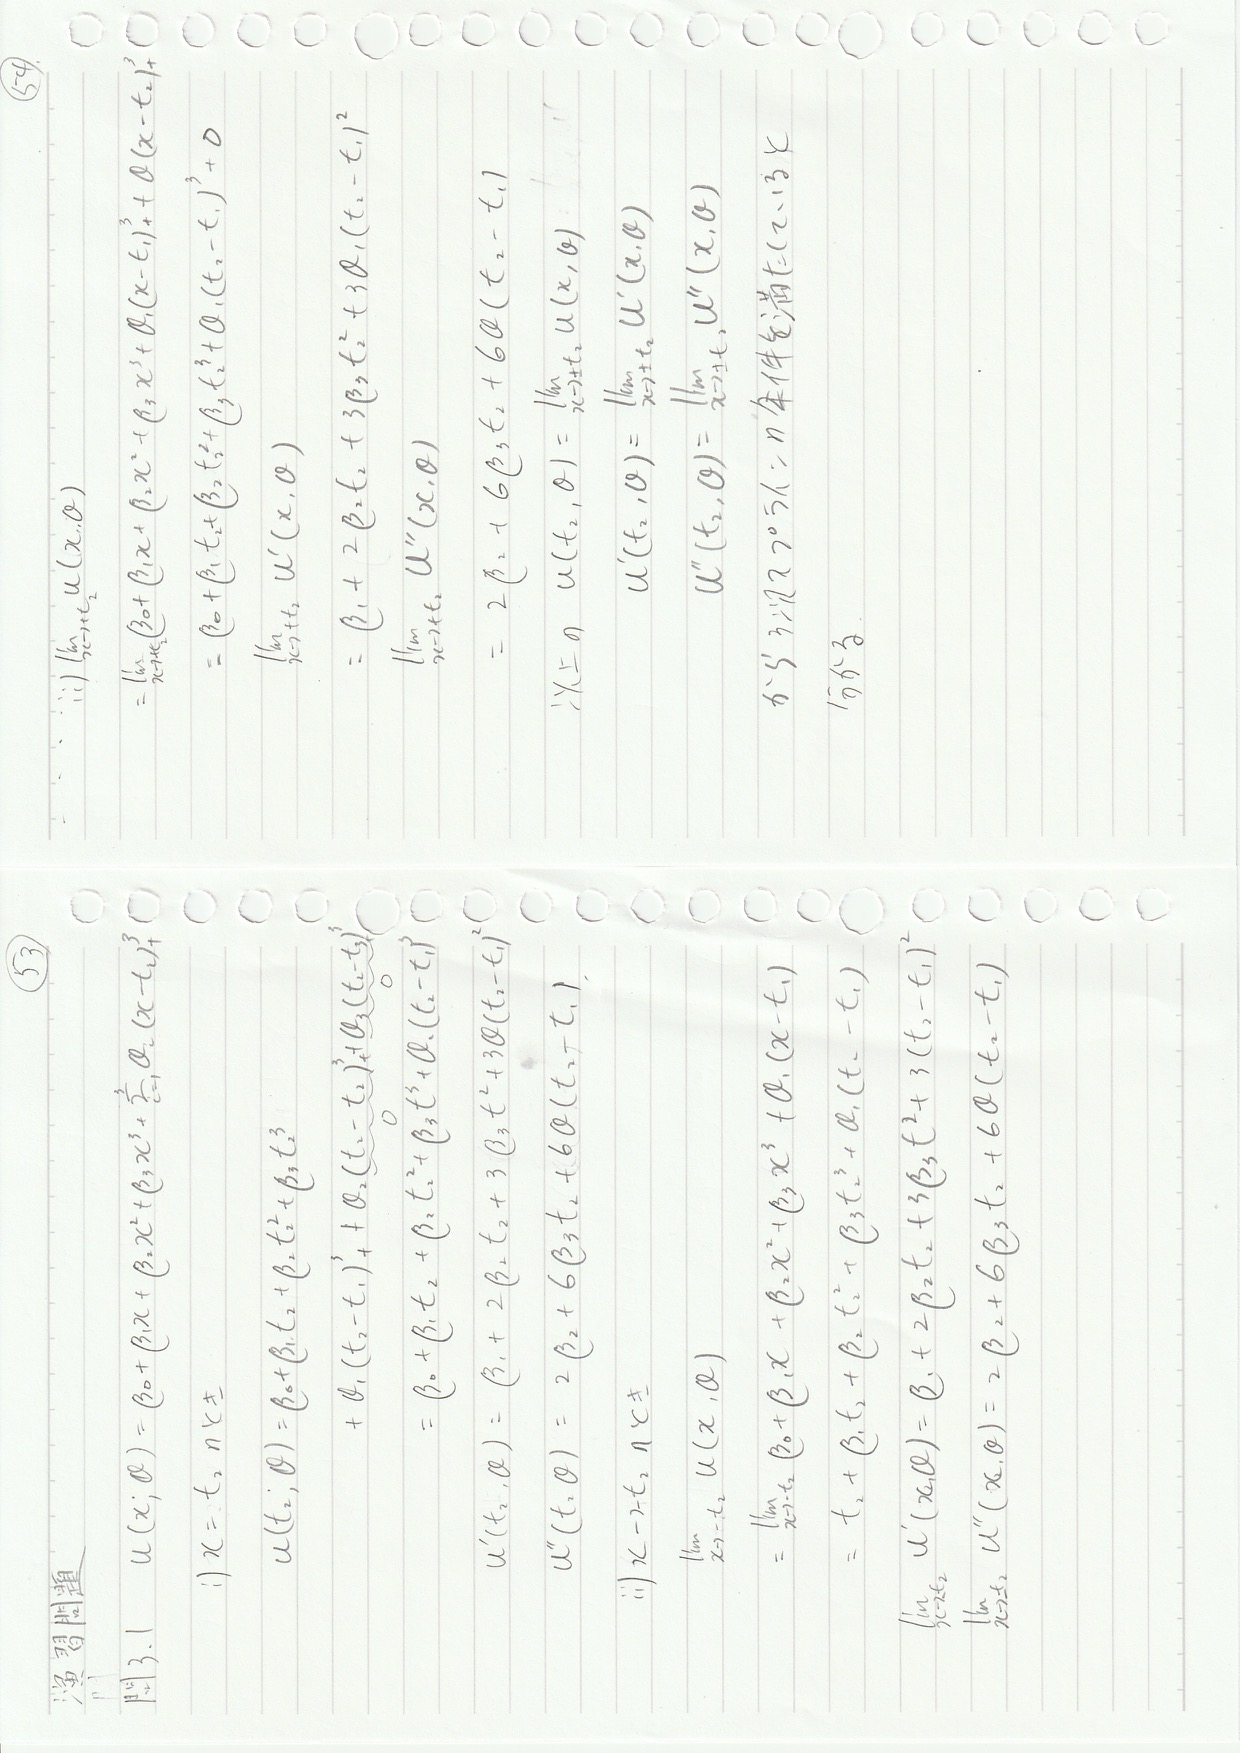 53
演習問題
問3.1 u(x;θ) = β₀+β₁x+β₂x²+β₃x³+Σ³ᵢ₌₁θᵢ(x-tᵢ)³₊
i) x=t₂ のとき
u(t₂;θ) = β₀+β₁t₂+β₂t₂²+β₃t₂³
+ θ₁(t₂-t₁)³₊ + θ₂(t₂-t₂)³₊+θ₃(t₂-t₃)³₊
0 0
= β₀+β₁t₂+β₂t₂²+β₃t³+θ₁(t₂-t₁)³
u'(t₂,θ) = β₁+2β₂t₂+3β₃t²+3θ(t₂-t₁)²
u''(t₂θ) = 2β₂+6β₃t₂+6θ(t₂-t₁)
ii) x→-t₂ のとき
lim x→-t₂ u(x,θ)
= lim x→-t₂ β₀+β₁x+β₂x²+β₃x³+θ₁(x-t₁)
= t₂+β₁t₂+β₂t₂²+β₃t₂³+θ₁(t₂-t₁)
lim x→-t₂ u'(x,θ) = β₁+2β₂t₂+3β₃t₂²+3(t₂-t₁)²
lim x→-t₂ u''(x,θ) = 2β₂+6β₃t₂+6θ(t₂-t₁)
54
ii) lim x→+t₂ u(x,θ)
= lim x→+t₂ (β₀+β₁x+β₂x²+β₃x³+θ₁(x-t₁)³₊+θ(x-t₂)³₊
= β₀+β₁t₂+β₂t₂²+β₃t₂³+θ₁(t₂-t₁)³+0
lim x→+t₂ u'(x,θ)
= β₁+2β₂t₂+3β₃t₂²+3θ₁(t₂-t₁)²
lim x→+t₂ u''(x,θ)
= 2β₂+6β₃t₂+6θ(t₂-t₁)
以上の u(t₂,θ) = lim x→±t₂ u(x,θ)
u'(t₂,θ) = lim x→±t₂ u'(x,θ)
u''(t₂,θ) = lim x→±t₂ u''(x,θ)
から3次スプラインの条件を満たしていると
分かる.